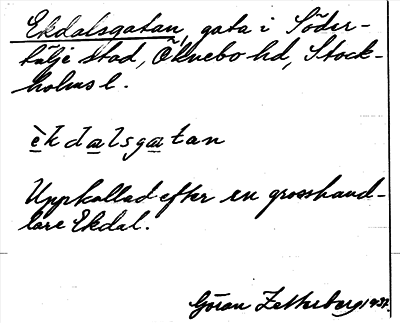 Ekdalsgatan, gata i Söder-
tälje stad, Öknebo hd, Stock-
holms l.
èkdalsgatan
Uppkallad efter en grosshand-
lare Ekdal.
Göran Zetterberg 1937.